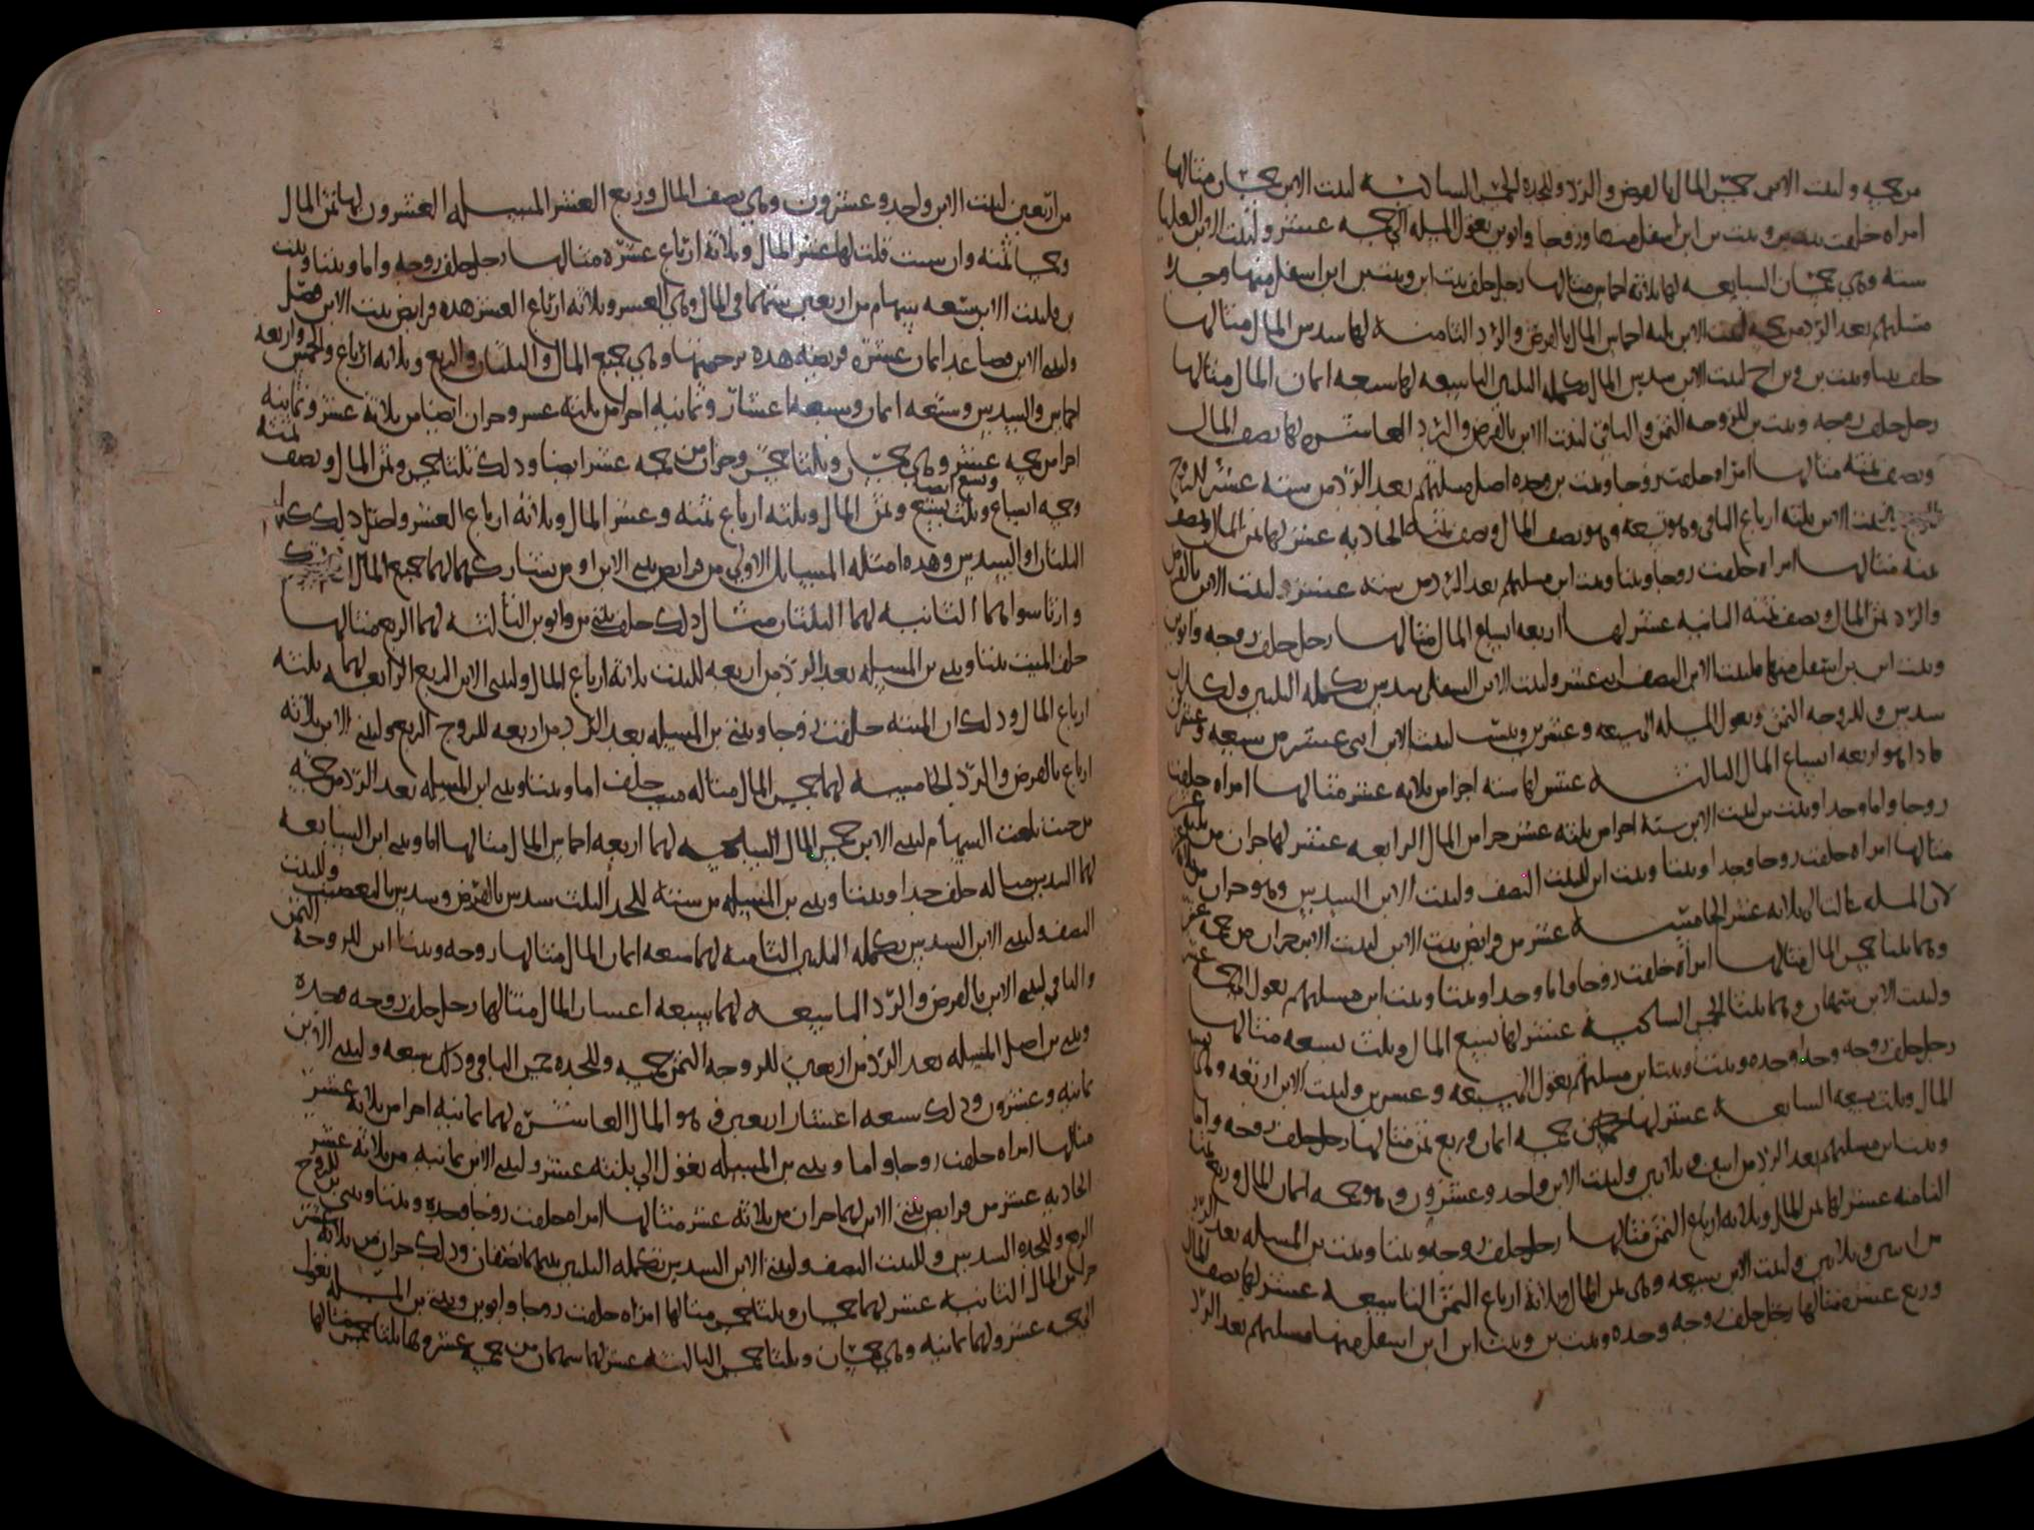 من خمسه ولبنت الابن خمس المال بالفرض والرد وللجده الخمس السادسه لبنت الابن خمسان مثالها
امراه خلفت بنت وبنت بن ابن اسفل منها وزوجا وابوين تعول المسله الى خمسه عشر ولبنت الابن العليا
سته وهي خمسان السابعه لها ثلاثه اخماس مثالها رجل خلف بنت ابن وبنتين ابن ابن اسفل منها وجده
مسلتهم بعد الرد من خمسه لبنت الابن ثلثه اخماس المال بالفرض والرد الثامنه لها سدس المال مثالها
خلف بنتا وبنت بن وبن اخ لبنت الابن سدس المال تكمله الثلثين التاسعه لها سبعه اثمان المال مثالها
رجل خلف زوجه وبنت بن للزوجه الثمن والباقي لبنت الابن بالفرض والرد العاشره لها نصف المال
ونصف ثمنه مثالها امراه خلفت زوجا وبنت بن وجده اصل مسلتهم بعد الرد من سته عشر للزوج
الربع ولبنت الابن ثلثه ارباع الباقي وهو تسعه وهو نصف المال ونصف ثمنه الحاديه عشر لها ثمن المال ونصف
ثمنه مثالها امراه خلفت زوجا وبنتا وبنت ابن مسلتهم بعد الرد من سته عشر ولبنت الابن بالفرض
والرد ثمن المال ونصف ثمنه الثانيه عشر لها اربعه اسباع المال مثالها رجل خلف زوجه وابوين
وبنت ابن بن اسفل منها فلبنت الابن النصف اثنى عشر ولبنت الابن السفلى سدس تكمله الثلثين ولكل اب
سدس وللزوجه الثمن وتعول المسله الى سبعه وعشرين ونسب لبنت الابن اثنى عشر من سبعه وعشرين
فاذا هو اربعه اسباع المال الثالثه عشر لها سته اجزا من ثلاثه عشر مثالها امراه خلفت
زوجا واما وجدا وبنت بن لبنت الابن سته اجزا من ثلثه عشر جزا من المال الرابعه عشر لها جزان من ثلثه عشر
مثالها امراه خلفت زوجا وجدا وبنتا وبنت ابن للبنت النصف ولبنت الابن السدس وهو جزان من ثلاثه
لان المسله عالت الى ثلاثه عشر الخامسه عشر من فرايض بنت الابن لبنت الابن جزان من خمسه عشر
وهما ثلثا خمس المال مثالها امراه خلفت زوجا واما وجدا وبنتا وبنت ابن مسلتهم تعول الى خمسه عشر
ولبنت الابن سهمان وهما ثلثا الخمس السادسه عشر لها تسع المال وثلث تسعه مثالها
رجل خلف زوجه وجدا وجده وبنت وبنت ابن مسلتهم تعول الى سبعه وعشرين ولبنت الابن اربعه وهي تسع
المال وثلث تسعه السابعه عشر لها خمسه اثمان وربع ثمن مثالها رجل خلف زوجه واما
وبنت ابن مسلتهم بعد الرد من اثنين وثلاثين ولبنت الابن واحد وعشرون وهو خمسه اثمان المال وربع ثمنه
الثامنه عشر لها ثمن المال وثلاثه ارباع الثمن مثالها رجل خلف زوجه وبنتا وبنت بن المسله بعد الرد
من اثنين وثلاثين ولبنت الابن سبعه وهي ثمن المال وثلاثه ارباع الثمن التاسعه عشر لها نصف المال
وربع عشره مثالها رجل خلف زوجه وجده وبنت بن وبنت ابن ابن اسفل منها مسلتهم بعد الرد
من اربعين لبنت الابن واحد وعشرون وهي نصف المال وربع العشر المسله العشرون لها ثمن المال
وخمسا ثمنه وان شيت قلت لها عشر المال وثلاثه ارباع عشره مثالها رجل خلف زوجه واما وبنتا وبنت
بن فلبنت الابن سبعه سهام من اربعين سهما في المال وهي العشر وثلاثه ارباع العشر هذه فرايض بنت الابن فصل
ولبنتي الابن فصاعدا ثمان عشره فريضه هذه ترجمتها وهي جميع المال والثلثان والربع وثلاثه ارباع والخمس واربعه
اخماس والسدس وسبعه اثمان وسبعه اعشار وثمانيه اجزا من ثلثه عشر وجزان ايضا من ثلاثه عشر وثمانيه
اجزا من خمسه عشر وهي خمسان وثلثا خمس وجزان من خمسه عشر ايضا وذلك ثلثا خمس وثمن المال ونصف ثمنه
وخمسه اتساع وثلث تسع وتسع ايضا وثمن المال وثلثه ارباع ثمنه وعشر المال وثلاثه ارباع العشر واصل ذلك كله
الثلثان او السدس وهذه امثله المسايل الاولى من فرايض بنتي الابن او من يشاركهما لهما جميع المال ان لم يترك
وارثا سواهما الثانيه لهما الثلثان مثال ذلك خلف بنتي بن وابوين الثالثه لهما الربع مثالها
خلف الميت بنتا وبنتي بن المسله بعد الرد من اربعه للبنت ثلاثه ارباع المال ولبنتي الابن الربع الرابعه لهما ثلثه
ارباع المال وذلك ان الميته خلفت زوجا وبنتي بن المسله بعد الرد من اربعه للزوج الربع ولبنتي الابن ثلاثه
ارباع بالفرض والرد الخامسه لهما خمس المال مثاله ميت خلف اما وبنتا وبنتي ابن المسله بعد الرد من خمسه
من حيث بلغت السهام لبنتي الابن خمس المال السادسه لهما اربعه اخماس المال مثالها اما وبنتي ابن السابعه
لهما السدس مثاله خلف جدا وبنتا وبنتي بن المسله من سته للجد الثلث سدس بالفرض وسدس بالتعصيب وللبنت
النصف ولبنتي الابن السدس تكمله الثلثين الثامنه لهما سبعه اثمان المال مثالها زوجه وبنتا ابن للزوجه الثمن
والباقي لبنتي الابن بالفرض والرد التاسعه لهما سبعه اعشار المال مثالها رجل خلف زوجه وجده
وبنتي بن اصل المسله بعد الرد من اربعين للزوجه الثمن خمسه وللجده خمس الباقي وذلك سبعه ولبنتي الابن
ثمانيه وعشرون وذلك سبعه اعشار اربعين في هو المال العاشره لهما ثمانيه اجزا من ثلاثه عشر
مثالها امراه خلفت زوجا واما وبنتي بن المسله تعول الى ثلثه عشر ولبنتي الابن ثمانيه من ثلاثه عشر
الحاديه عشر من فرايض بنتي الابن لهما جزان من ثلاثه عشر مثالها امراه خلفت زوجا وجده وبنتا وبنتي بن للزوج
الربع وللجده السدس وللبنت النصف ولبنتي الابن السدس تكمله الثلثين بينهما نصفان وذلك جزان من ثلاثه عشر
جزا من المال الثانيه عشر لهما خمسان وثلثا خمس مثالها امراه خلفت زوجا وابوين وبنتي بن المسله تعول
الى خمسه عشر ولهما ثمانيه وهي خمسان وثلثا خمس الثالثه عشر لهما سهمان من خمسه عشر وهما ثلثا خمس مثالها